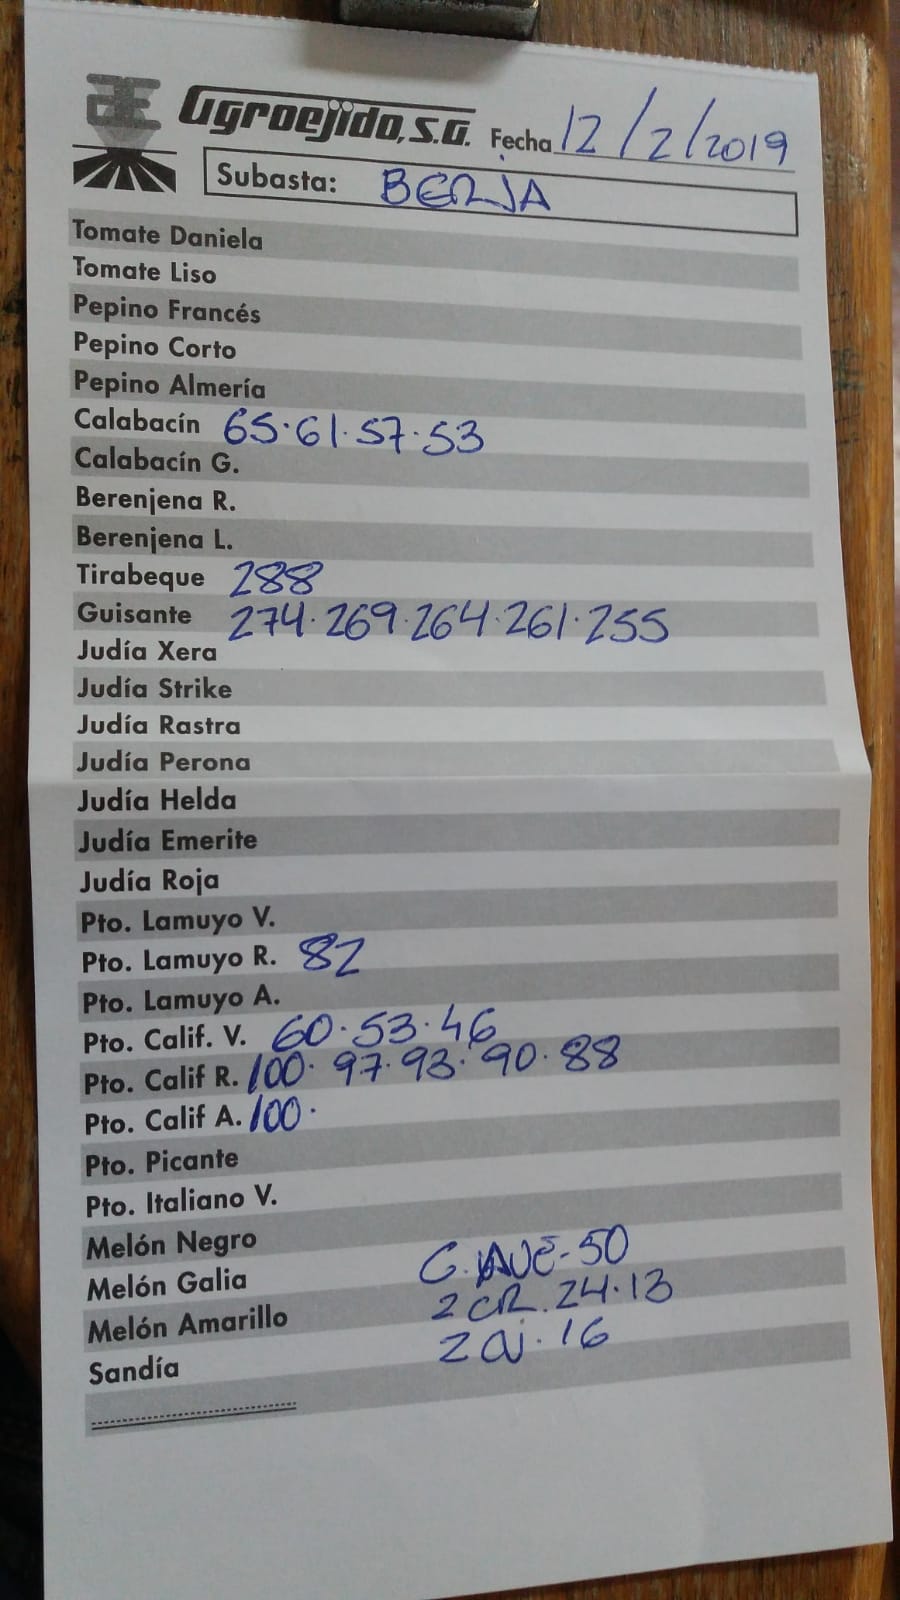 Agroejido, S.A. Fecha 12/2/2019
Subasta: BERJA
Tomate Daniela
Tomate Liso
Pepino Francés
Pepino Corto
Pepino Almería
Calabacín 65·61·57·53
Calabacín G.
Berenjena R.
Berenjena L.
Tirabeque 288
Guisante 274·269·264·261·255
Judía Xera
Judía Strike
Judía Rastra
Judía Perona
Judía Helda
Judía Emerite
Judía Roja
Pto. Lamuyo V.
Pto. Lamuyo R. 82
Pto. Lamuyo A.
Pto. Calif. V. 60·53·46
Pto. Calif R. 100·97·93·90·88
Pto. Calif A. 100·
Pto. Picante
Pto. Italiano V.
Melón Negro
Melón Galia -50
Melón Amarillo 2 CR. 24·13
Sandía 16